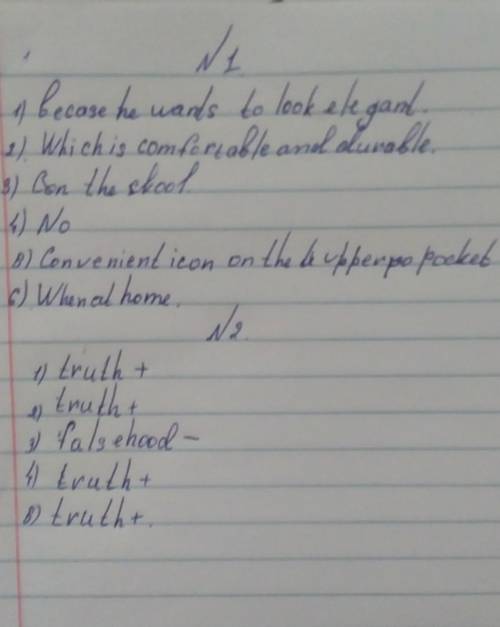 N1
1) Becose he wants to look elegant.
2) Which is comfortable and durable.
3) Con the skool.
4) No
5) Convenient icon on the upper po pocket
6) When at home.
N2.
1) truth +
2) truth +
3) falsehood -
4) truth +
5) truth +.